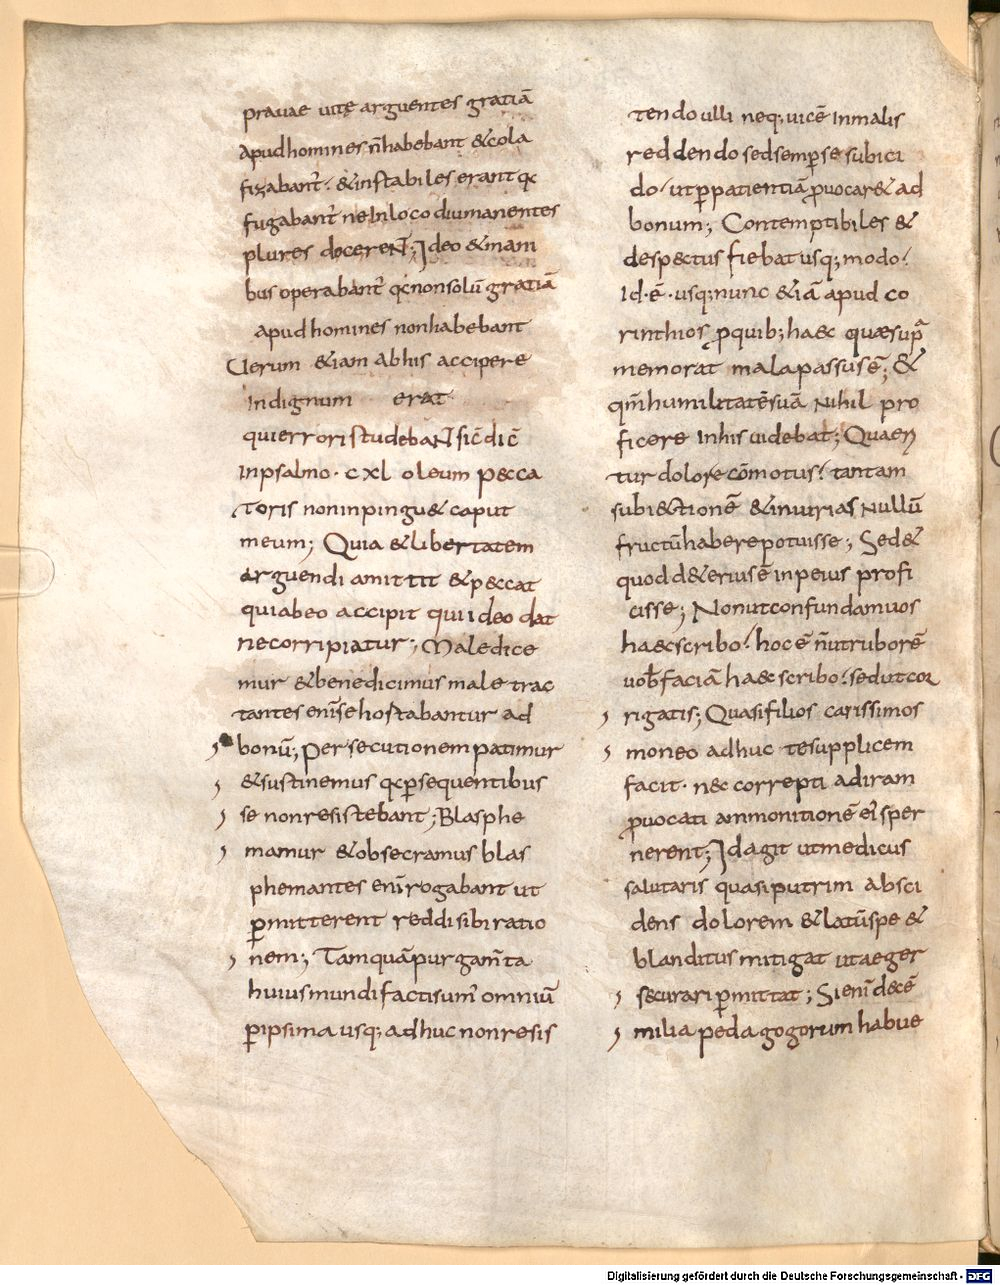 prauae uitę arguentes gratiā
apud homines n̄ habebant & cola
fizabant᷑. & instabiles erant qc
fugabant᷑ ne in loco diu manentes
plures docereNt; Ideo & mani
bus operabant᷑ qc non solū gratiā
apud homines non habebant
Uerum &iam ab his accipere
indignum erat
qui errori studebaNt sic̄ dic̄
in psalmo · cxl oleum pecca
toris non inpingu& caput
meum; Quia & libertatem
arguendi amittit & peccat
qui ab eo accipit qui ideo dat
ne corripiatur; Maledice
mur & benedicimus male trac
tantes enī se hostabantur ad
bonū; Persecutionem patimur
& sustinemus qc ꝑsequentibus
se non resistebant; Blasphe
mamur & obsecramus blas
phemantes enī rogabant ut
ꝑmitterent reddi sibi ratio
nem; Tamquā purgam̄ta
huius mundi facti sum᷑ omniū
ꝑipsima usq; adhuc non resis
tendo ulli neq; uicē in malis
reddendo sed semꝑ se subici
do. ut ꝑ patientiā ꝓuocar& ad
bonum; Contemptibiles &
despectus fiebat usq; modo.
Id · ē · usq; nunc &iā apud co
rinthios ꝓ quib; haec quae supra
memorat mala passus ē; &
qm̄ humilitatē suā nihil pro
ficere in his uidebat; Quaeri
tur dolore cōmotus. tantam
subiectionē & iniurias nullū
fructū habere potuisse; Sed &
quod d&erius ē in peius profi
cisse; Non ut confundam uos
haec scribo. hoc ē n̄ ut ruborē
uob̄ faciā haec scribo. sed ut cor
rigatis; Quasi filios carissimos
moneo adhuc te supplicem
facit · nec correpti ad iram
ꝓuocati ammonitionē ei᷑ sper
nerent; Id agit ut medicus
salutaris quasi putrim absci
dens dolorem & latū spe &
blanditus mitigat ut aeger
se curari ꝑmittat; Si enī decē
milia pedagogorum habue
Digitalisierung gefördert durch die Deutsche Forschungsgemeinschaft - DFG